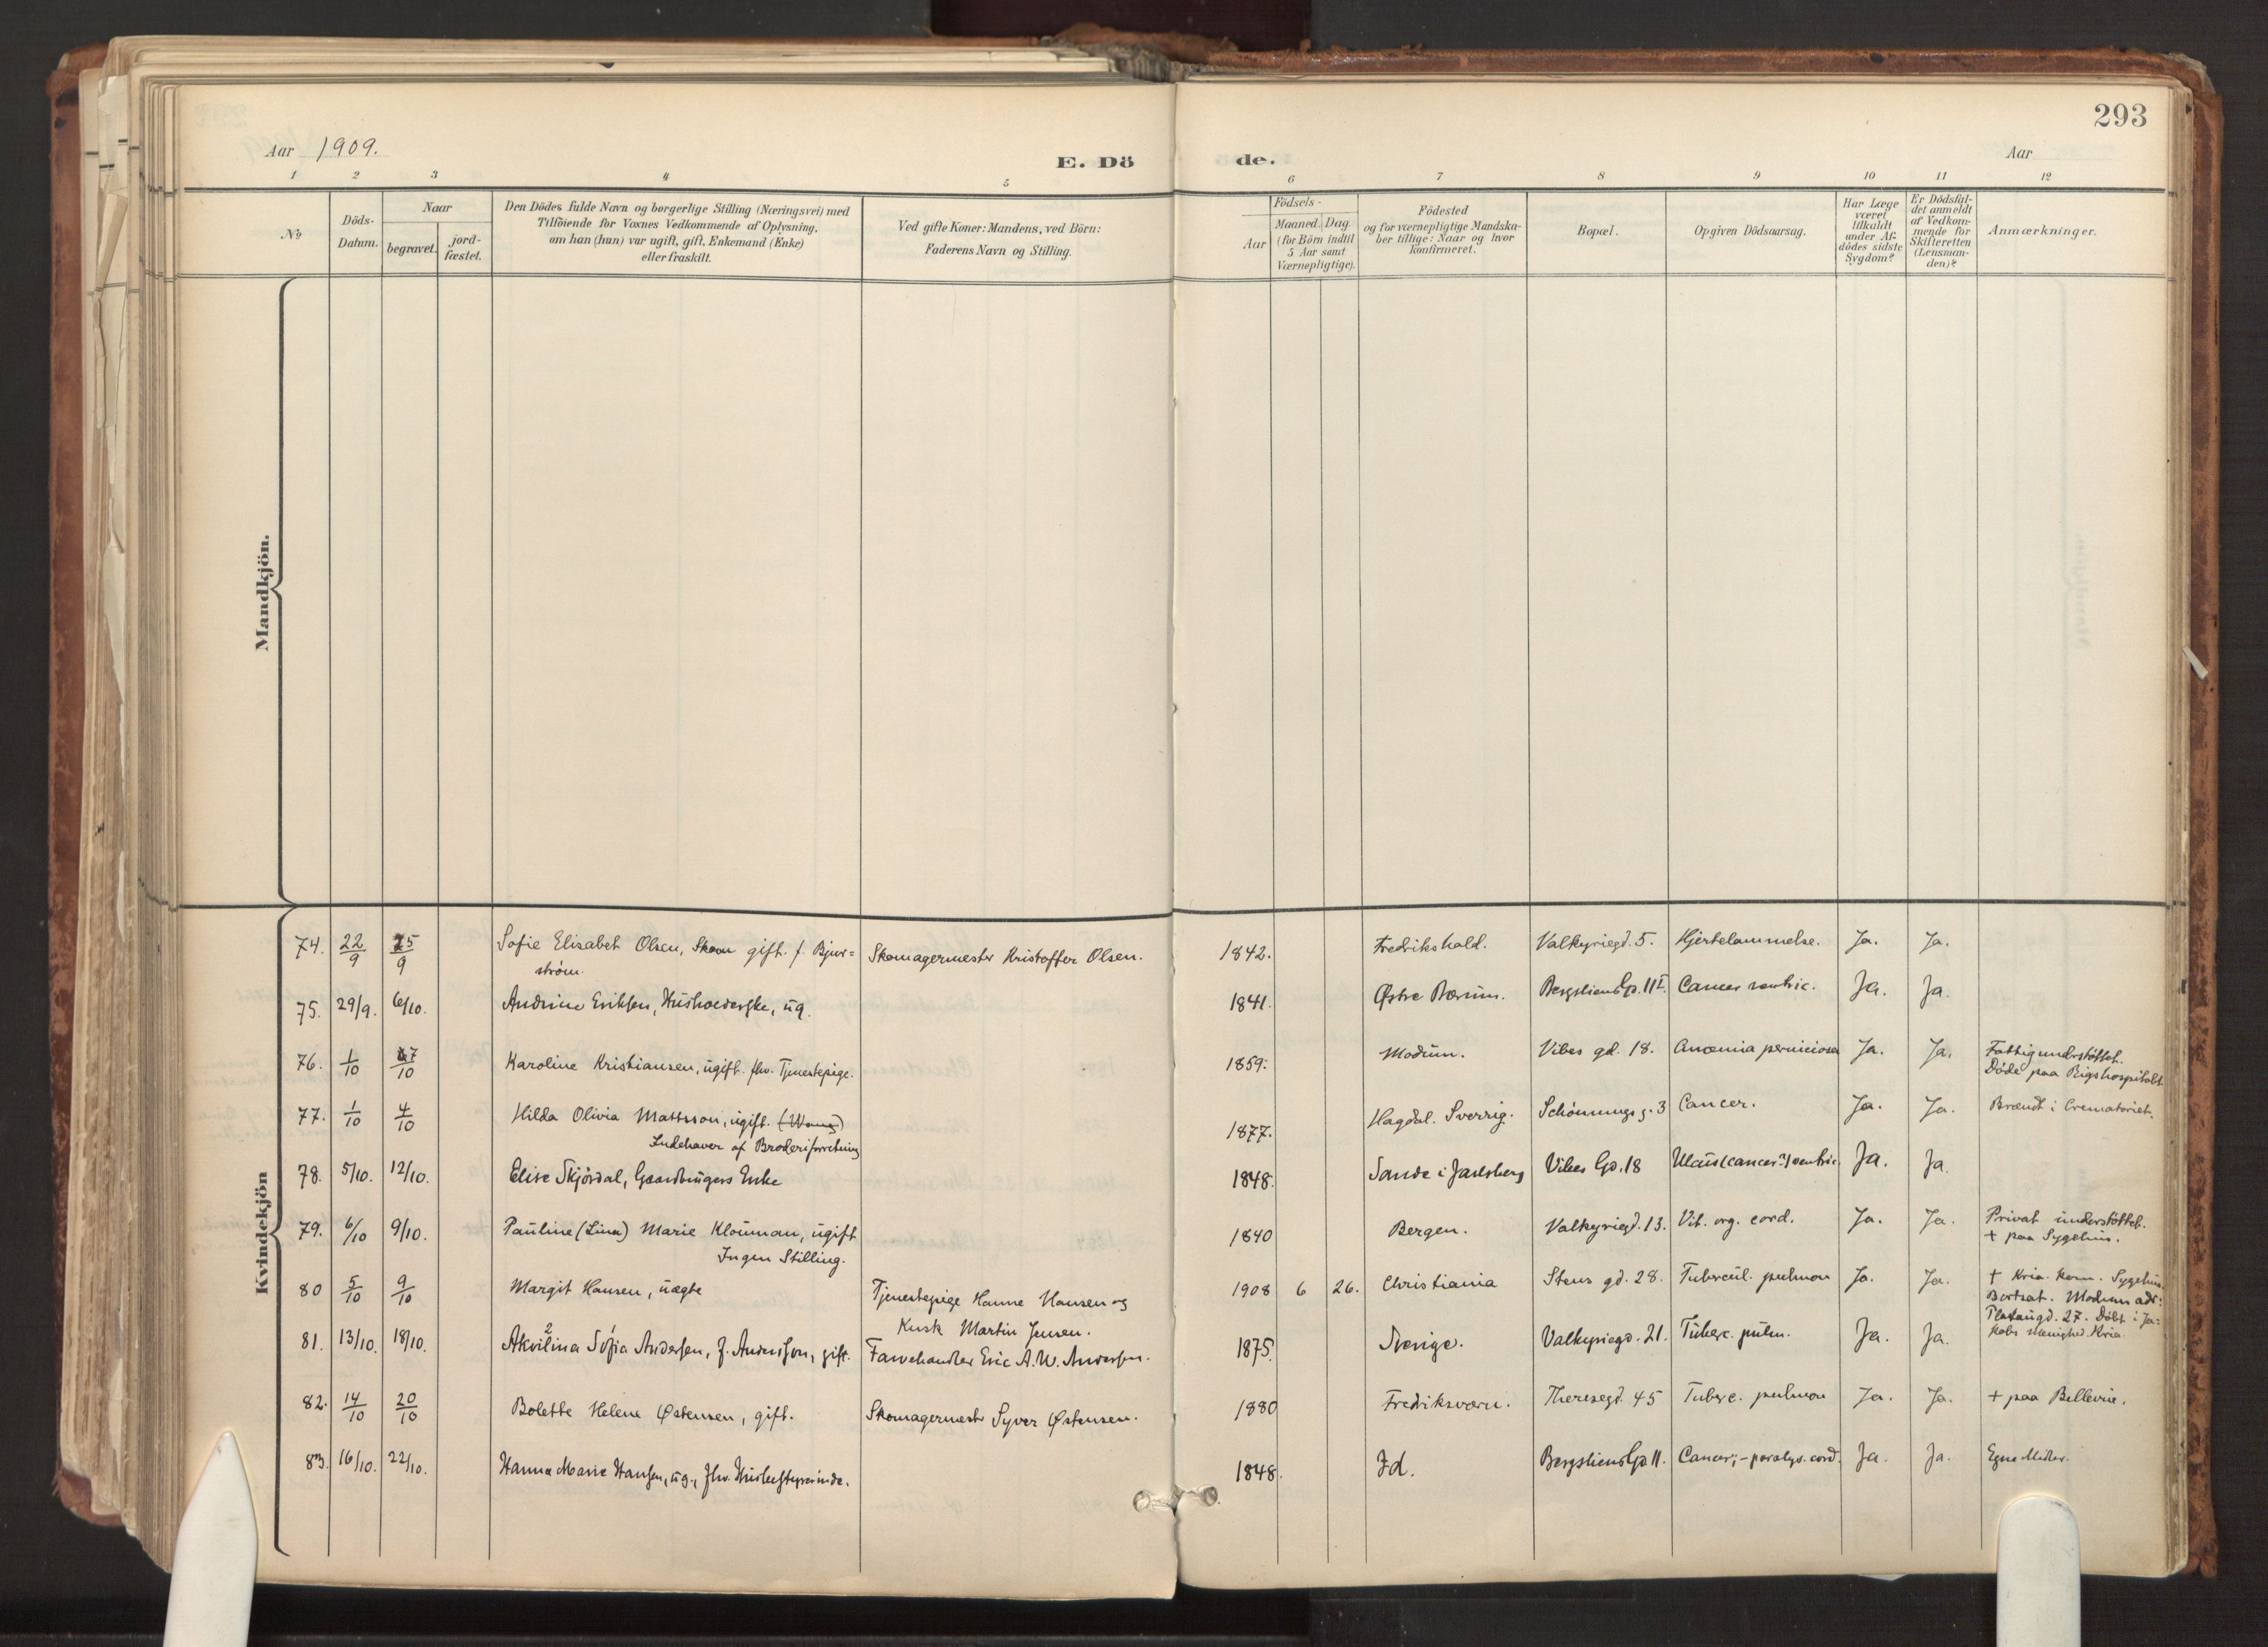 293
Aar 1909.
E. Dö
de.
Aar
1 2 3 4 5 6 7 8 9 10 11 12
No
Döds-
Datum.
Naar
begravet.
jord-
fæstet.
Den Dödes fulde Navn og borgerlige Stilling (Næringsvei) med
Tilföiende for Voxnes Vedkommende af Oplysning,
om han (hun) var ugift, gift, Enkemand (Enke)
eller fraskilt.
Ved gifte Koner: Mandens, ved Börn:
Faderens Navn og Stilling.
Födsels-
Aar
Maaned. Dag.
(for Börn indtil
5 Aar samt
Værnepligtige).
Födested
og for værnepligtige Mandska-
ber tillige: Naar og hvor
konfirmeret.
Bopæl.
Opgiven Dödsaarsag.
Har Læge
været
tilkaldt
under Af-
dödes sidste
Sygdom?
Er Dödsfal-
det anmeldt
af Vedkom-
mende for
Skifteretten
(Lensman-
den)?
Anmærkninger.
Mandkjön.
Kvindekjön
74. 22/9 25/9 Sofie Elisabet Olsen, gift. f. Bjur=
ström.
Skomagermester Kristoffer Olsen. 1842. Fredrikshald. Valkyriegd. 5. Hjertelammelse. Ja. Ja.
75. 29/9. 6/10. Andrine Eriksen, Husholderske, ug. 1841. Østre Bærum. Bergsliens Gd. 11 I. Cancer ventric. Ja. Ja.
76. 1/10 7/10 Karoline Kristiansen, ugift. fhv. Tjenestepige. 1859. Modum. Vibes gd. 18. Anæmia perniciosa Ja. Ja. Fattigunderstöttet.
Döde paa Rigshospitalet.
77. 1/10 4/10 Hilda Olivia Mattsson, ugift.
Indehaver af Broderiforretning
1877. Hagdal. Sverrig. Schönnings g. 3 Cancer. Ja. Ja. Brændt i Crematoriet.
78. 5/10. 12/10. Elise Skjördal, Gaardbrugers Enke 1848. Sande i Jarlsberg Vibes Gd. 18 Ulcus (cancer?) ventric. Ja. Ja.
79. 6/10 9/10. Pauline (Lina) Marie Klouman, ugift
Ingen Stilling.
1840 Bergen. Valkyriegd. 13. Vit. org. cord. Ja. Ja. Privat understöttet.
+ paa Sygehus.
80 5/10 9/10 Margit Hansen, uægte Tjenestepige Hanne Hansen og
Kusk Martin Jensen.
1908 6 26. Christiania Stens gd. 28. Tubercul. pulmon Ja. Ja. + Kria. kom. Sygehus.
Bortsat. Modrens adr:
Platougd. 27. Döbt i Ja=
kobs menighed. Kria.
81. 13/10. 18/10. Akvilina Sofia Andersen, f. Andersson, gift. Farvehandler Eric A. W. Andersen. 1875. Sverige. Valkyriegd. 21. Tuberc. pulm. Ja. Ja.
82. 14/10 20/10 Bolette Helene Østensen, gift. Skomagermester Syver Østensen. 1880 Fredriksværn. Theresegd. 45 Tuberc. pulmon Ja. Ja. + paa Bellevue.
83. 16/10. 22/10. Hanna Marie Hansen, ug., fhv. Husbestyrerinde. 1848. Id. Bergsliens Gd. 11. Cancer; - paralys. cord. Ja. Ja. Egne Midler.